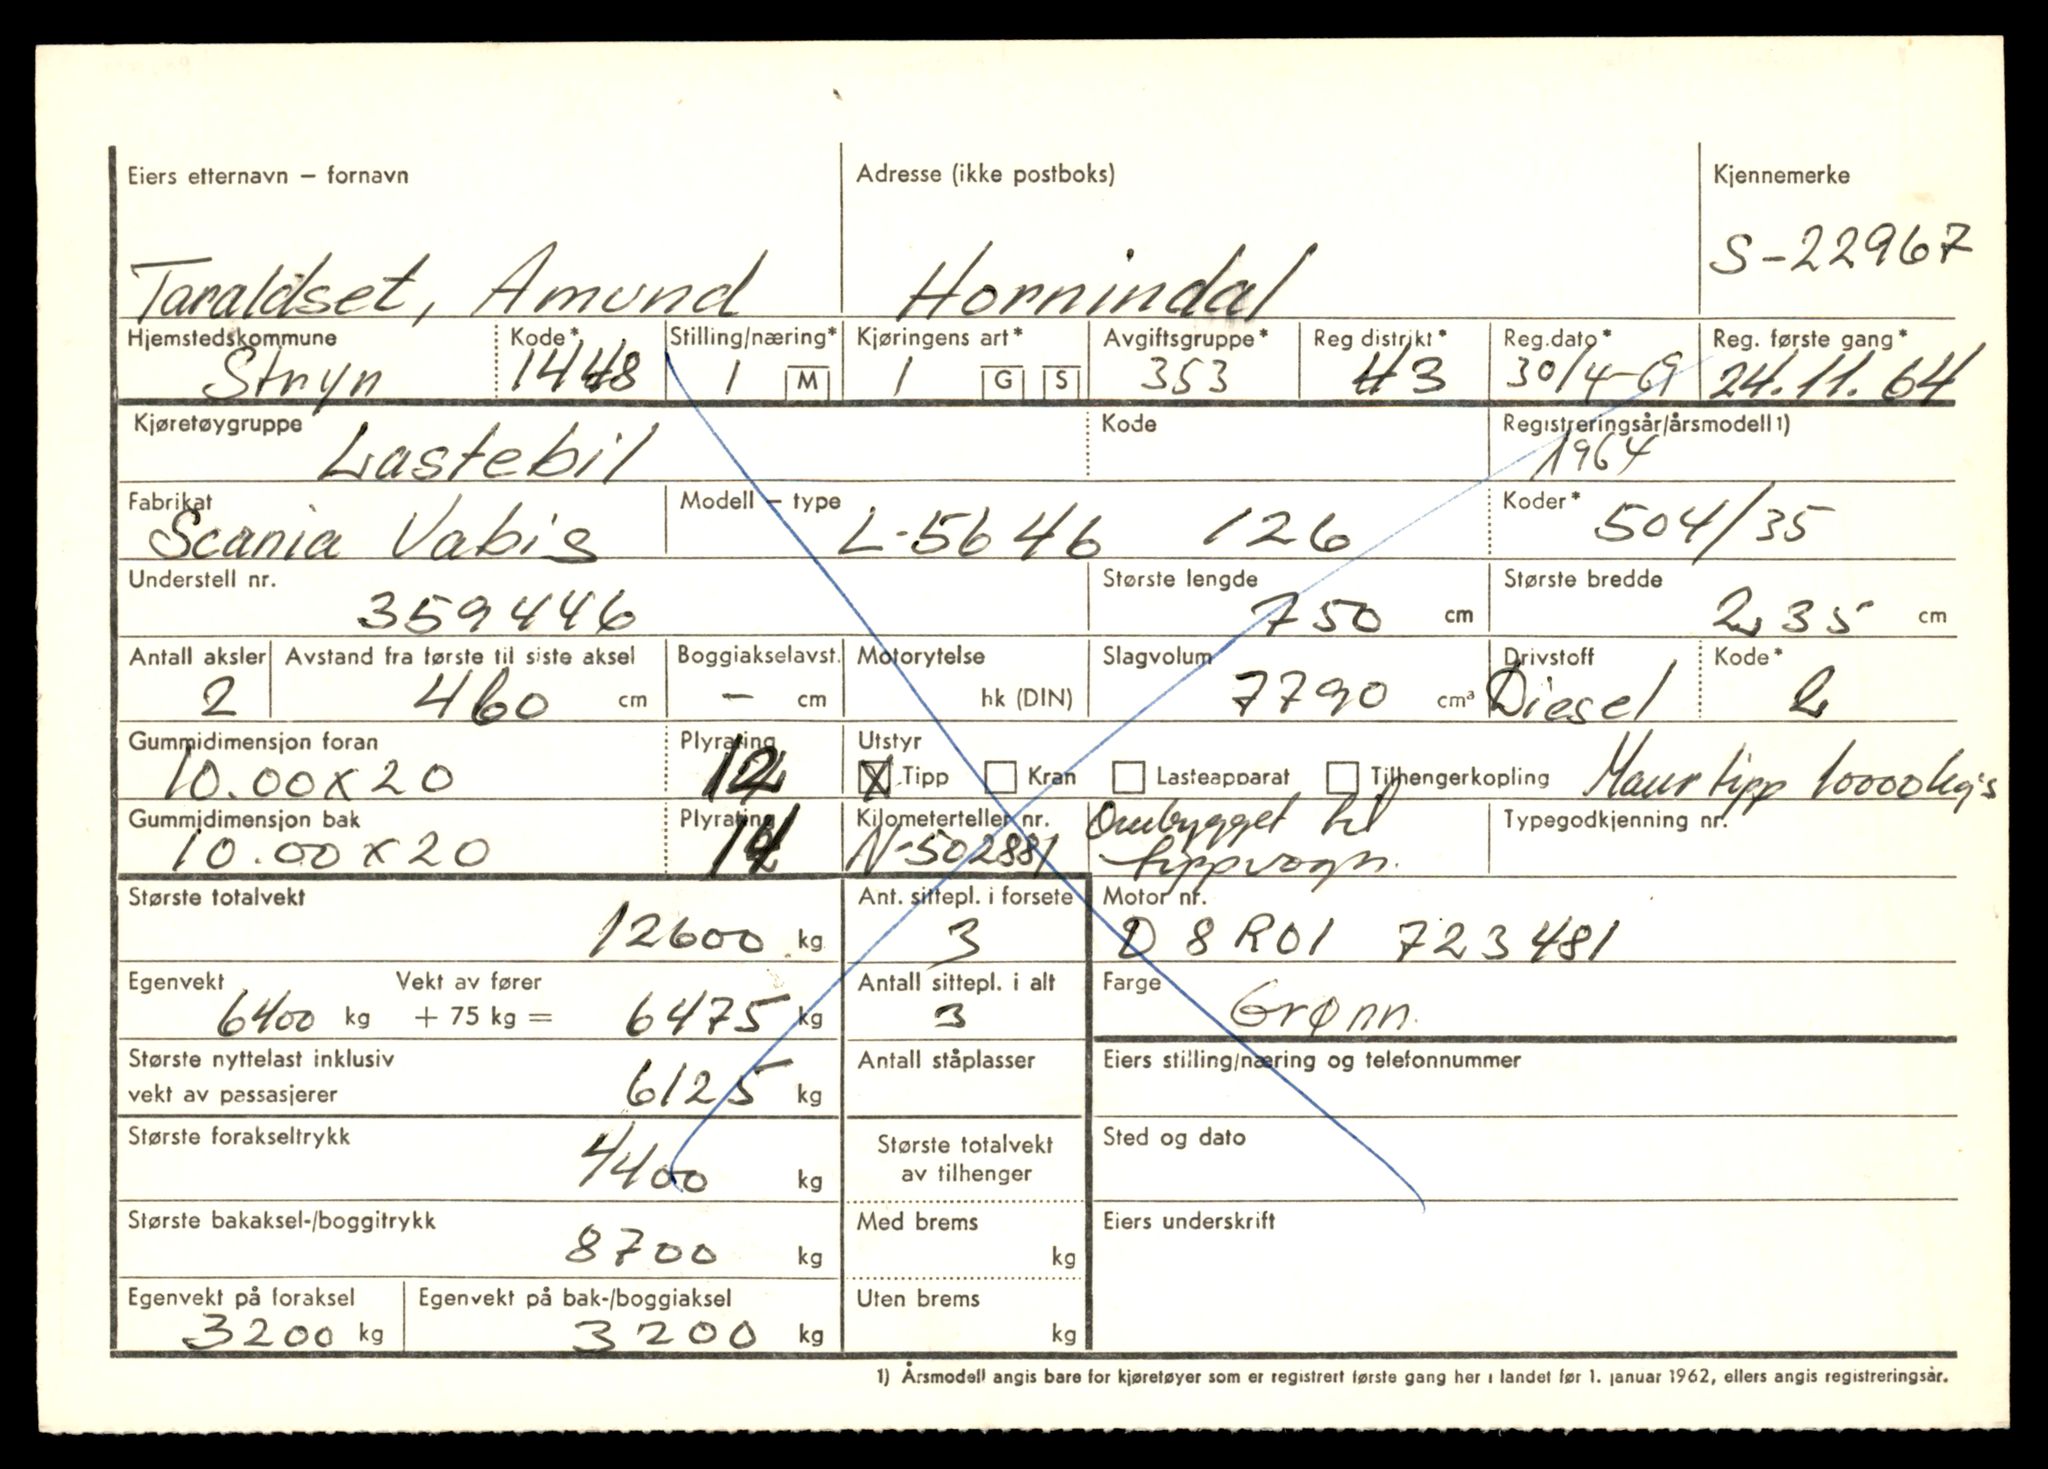 Eiers etternavn – fornavn
Adresse (ikke postboks)
Kjennemerke
Taraldset, Amund
Hornindal
S-22967
Hjemstedskommune
Kode*
Stilling/næring*
Kjøringens art*
Avgiftsgruppe*
Reg distrikt*
Reg.dato*
Reg. første gang*
Stryn
1448
1
M
1
G
S
353
43
30/4-69
24.11.64
Kjøretøygruppe
Kode
Registreringsår/årsmodell 1)
Lastebil
1964
Fabrikat
Modell – type
Koder*
Scania Vabis
L-5646
126
504/35
Understell nr.
Største lengde
Største bredde
359446
750 cm
235 cm
Antall aksler
Avstand fra første til siste aksel
Boggiakselavst.
Motorytelse
Slagvolum
Drivstoff
Kode*
2
460 cm
– cm
hk (DIN)
7790 cm³
Diesel
2
Gummidimensjon foran
Plyrating
Utstyr
10.00x20
X Tipp
Kran
Lasteapparat
Tilhengerkopling
Maur tipp 10000kg's
Gummidimensjon bak
Plyrating
Kilometerteller nr.
Ombygget til
Typegodkjenning nr.
10.00x20
14
N-502881
tippvogn.
Største totalvekt
Ant. sittepl. i forsete
Motor nr.
12600 kg
3
D 8 R01 723481
Egenvekt
Vekt av fører
Antall sittepl. i alt
Farge
6400 kg
+ 75 kg =
6475 kg
3
Grønn.
Største nyttelast inklusiv
vekt av passasjerer
6125 kg
Antall ståplasser
Eiers stilling/næring og telefonnummer
Største forakseltrykk
4400 kg
Største totalvekt
av tilhenger
Sted og dato
Største bakaksel-/boggitrykk
8700 kg
Med brems
kg
Eiers underskrift
Egenvekt på foraksel
Egenvekt på bak-/boggiaksel
Uten brems
3200 kg
3200 kg
kg
1) Årsmodell angis bare for kjøretøyer som er registrert første gang her i landet før 1. januar 1962, ellers angis registreringsår.